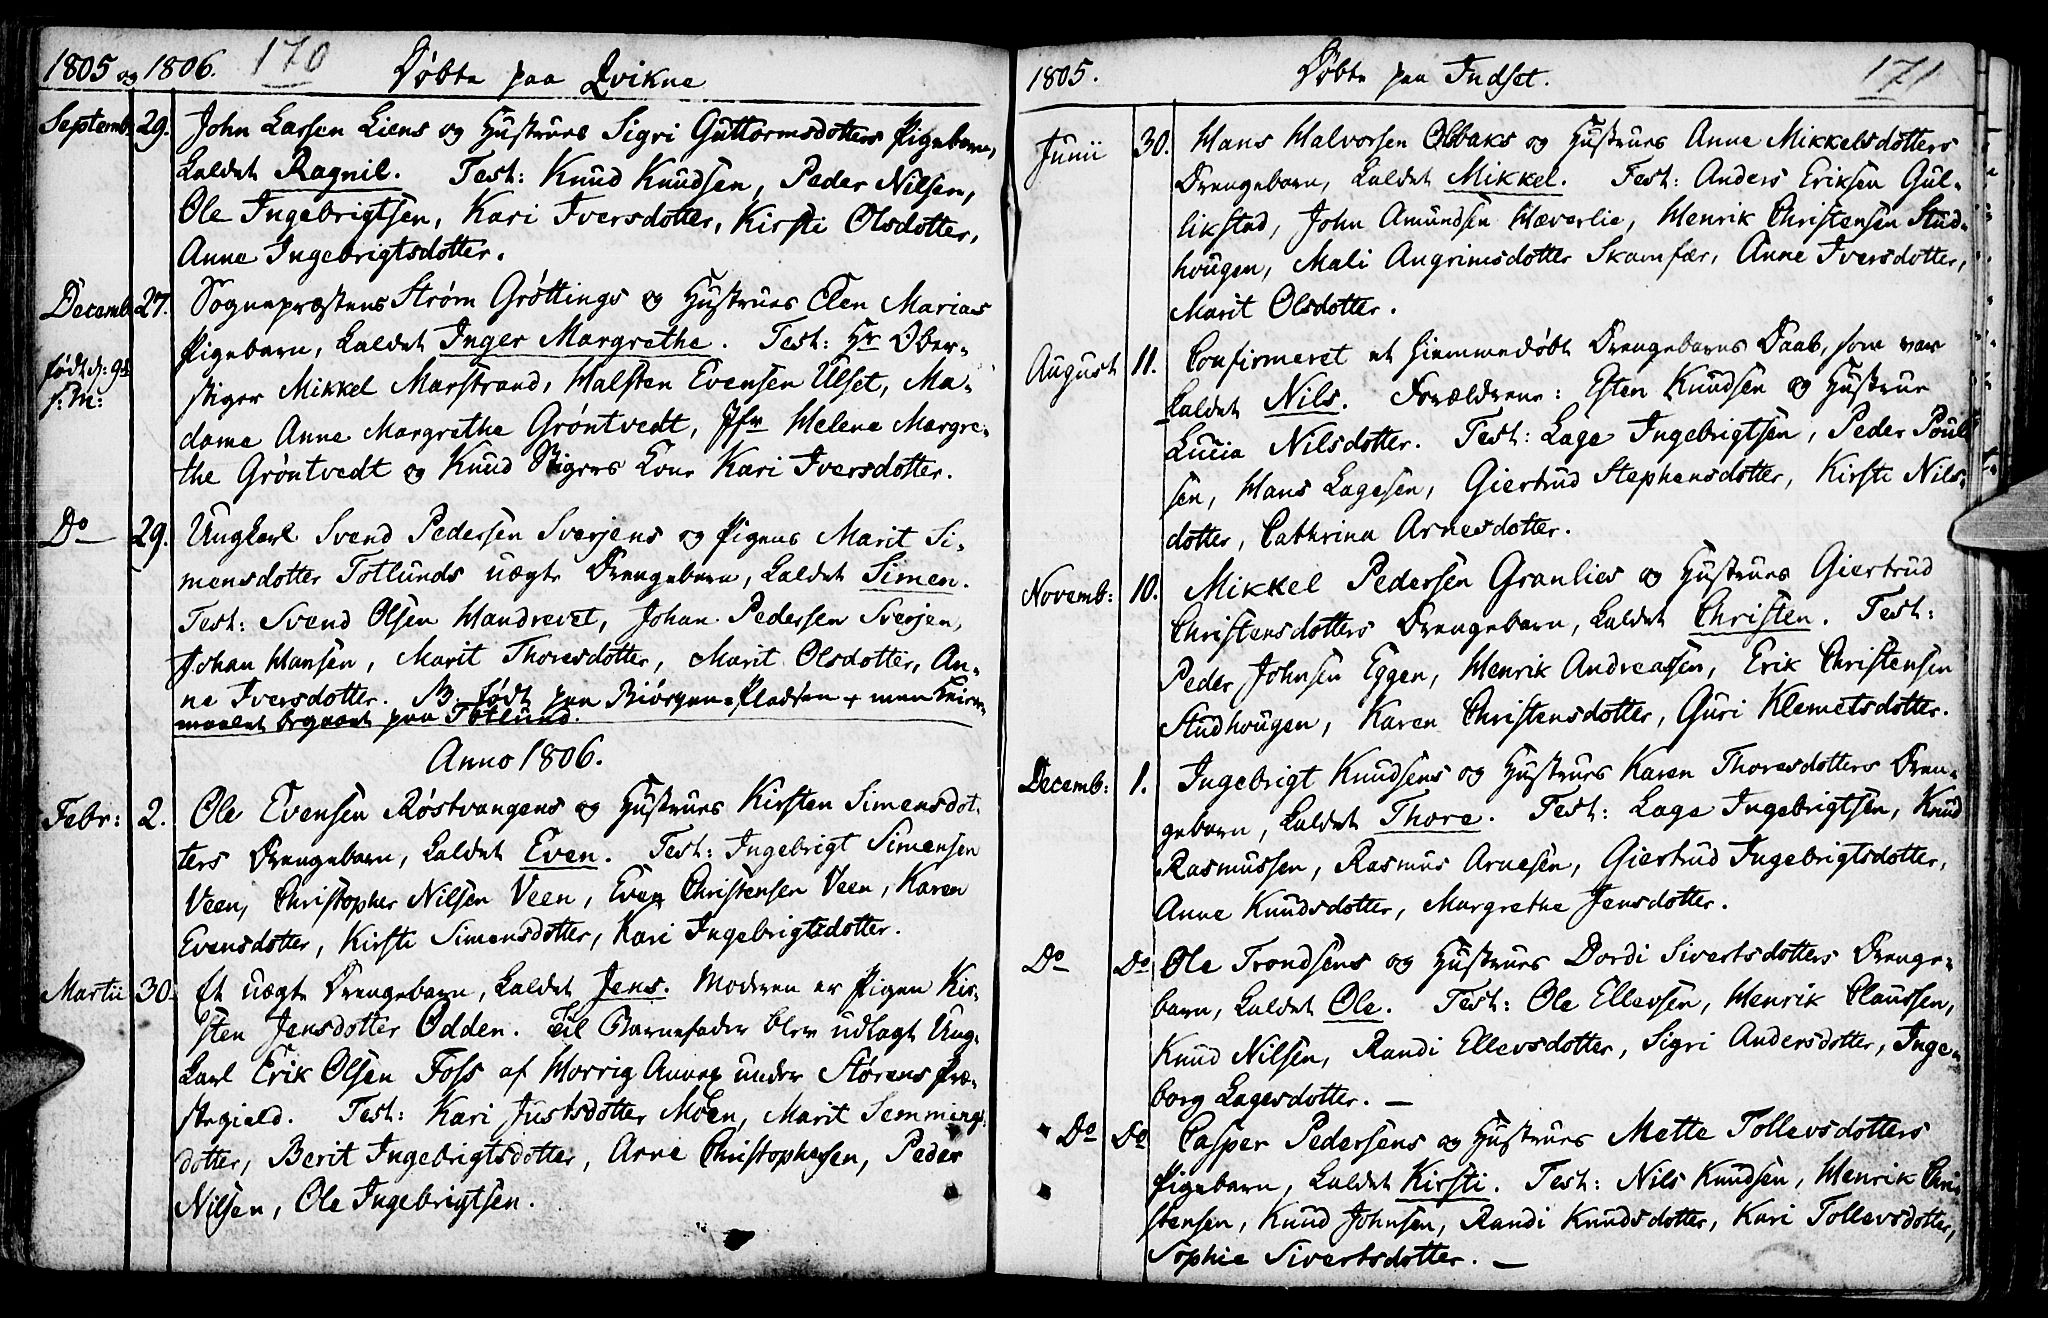 1805 og 1806. 170 Døbte paa Qvikne
Septemb: 29. John Larsen Liens og Hustrues Sigri Guttormsdotters Pigebarn,
kaldet Ragnil. Test: Knud Knudsen, Peder Nilsen,
Ole Ingebrigtsen, Kari Iversdotter, Kirsti Olsdotter,
Anne Ingebrigtsdotter.
Decemb 27. Sognepræstens Strøm Grøttings og Hustrues Elen Marias
født d: 9d Pigebarn, kaldet Inger Margrethe. Test: Hr Ober-
s: M: stiger Mikkel Marstrand, Halsten Evensen Ulset, Ma-
dame Anne Margrethe Grøntvedt, Jfr Helene Margre-
the Grøntvedt og Knud Stigers Kone Kari Iversdotter.
Do 29. Ungkarl Svend Pedersen Sverjens og Pigens Marit Si-
mensdotter Totlunds uægte Drengebarn, kaldet Simen.
Test: Svend Olsen Handrevet, Johan Pedersen Sverjen,
Johan Hansen, Marit Thoresdotter, Marit Olsdotter, An-
ne Iversdotter. B. født paa Biørgens Pladsen + men
begaaet paa Totlund.
Anno 1806.
Febr: 2. Ole Evensen Røstvangens og Hustrues Kirsten Simensdot-
ters Drengebarn, kaldet Even. Test: Ingebrigt Simensen
Veen, Christopher Nilsen Veen, Even Christensen Veen, Karen
Evensdotter, Kirsti Simensdotter, Kari Ingebrigtsdotter.
Martii 30. Et uægte Drengebarn, kaldet Jens. Moderen er Pigen Kir-
sten Jensdotter Odden. Til Barnefader blev udlagt Ung-
karl Erik Olsen Foss af Horrig Annex under Størens Præ-
stegield. Test: Kari Justsdotter Moen, Marit Semmings-
dotter, Berit Ingebrigtsdotter, Arne Christophersen, Peder
Nilsen, Ole Ingebrigtsen.
1805. Døbte paa Indset. 171
Junii 30. Hans Halvorsen Olsbaks og Hustrues Anne Mikkelsdotters
Drengebarn, kaldet Mikkel. Test: Anders Eriksen Gul-
likstad, John Amundsen Hæverlie, Henrik Christensen Stud-
hougen, Mali Angrimsdotter Skamfær, Anne Iversdotter,
Marit Olsdotter.
August 11. Confirmeret et hiemmedøbt Drengebarns Daab, som var
kaldet Nils. Forældrene: Esten Knudsen og Hustrue
Lucia Nilsdotter. Test: Lage Ingebrigtsen, Peder Pouls-
sen, Hans Lagesen, Giertrud Stephensdotter, Kirsti Nils-
dotter, Cathrina Arnesdotter.
Novemb: 10. Mikkel Pedersen Granlies og Hustrues Giertrud
Christensdotters Drengebarn, kaldet Christen. Test:
Peder Johnsen Eggen, Henrik Andreassen, Erik Christensen
Studhougen, Karen Christensdotter, Guri Klemetsdotter.
Decemb: 1. Ingebrigt Knudsens og Hustrues Karen Thoresdotters Dren-
gebarn, kaldet Thore. Test: Lage Ingebrigtsen, Knud
Rasmussen, Rasmus Arnesen, Giertrud Ingebrigtsdotter,
Anne Knudsdotter, Margrethe Jensdotter.
Do Do Ole Trondsens og Hustrues Dordi Sivertsdotters Drenge-
barn, kaldet Ole. Test: Ole Ellevsen, Henrik Claussen,
Knud Nilsen, Randi Ellevsdotter, Sigri Andersdotter, Inge-
borg Lagesdotter. —
Do Do Casper Pedersens og Hustrues Mette Tollevsdotters
Pigebarn, kaldet Kirsti. Test: Nils Knudsen, Henrik Chri-
stensen, Knud Johnsen, Randi Knudsdotter, Kari Tollevsdotter,
Sophie Sivertsdotter. —